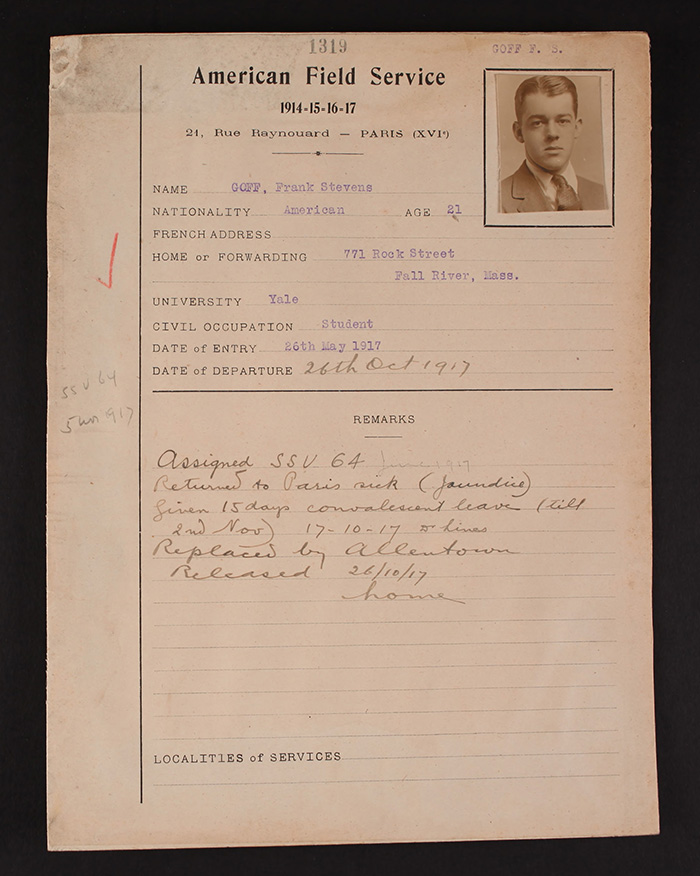 1319
GOFF F. S.
American Field Service
1914-15-16-17
21, Rue Raynouard — PARIS (XVIe)
NAME GOFF, Frank Stevens
NATIONALITY American AGE 21
FRENCH ADDRESS
HOME or FORWARDING 771 Rock Street
Fall River, Mass.
UNIVERSITY Yale
CIVIL OCCUPATION Student
DATE of ENTRY 26th May 1917
DATE of DEPARTURE 26th Oct 1917
SSU 64
5 1917
REMARKS
Assigned SSU 64 June 1917
Returned to Paris sick (Jaundice)
Given 15 days convalescent leave (till
2nd Nov) 17-10-17
Replaced by Allentown
Released 26/10/17
home
LOCALITIES of SERVICES